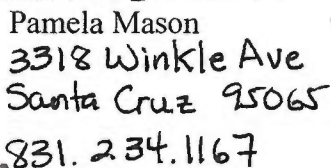 Pamela Mason
3318 Winkle Ave
Santa Cruz 95065
831. 234.1167